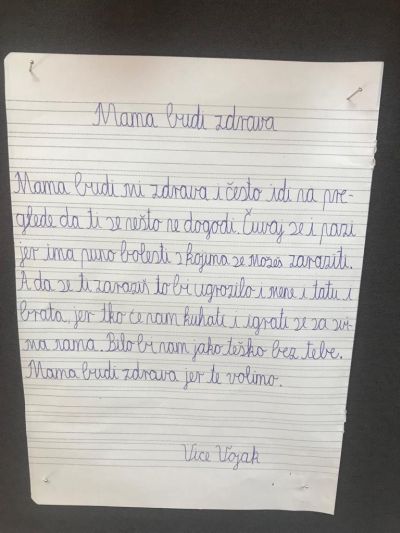 Mama budi zdrava
Mama budi mi zdrava i često idi na pre-
glede da ti se nešto ne dogodi. Čuvaj se i pazi
jer ima puno bolesti s kojima se možeš zaraziti.
A da se ti zaraziš to bi ugrozilo i mene i tatu i
brata, jer tko će nam kuhati i igrati se sa svi-
ma nama. Bilo bi nam jako teško bez tebe.
Mama budi zdrava jer te volimo.
Vice Vojak